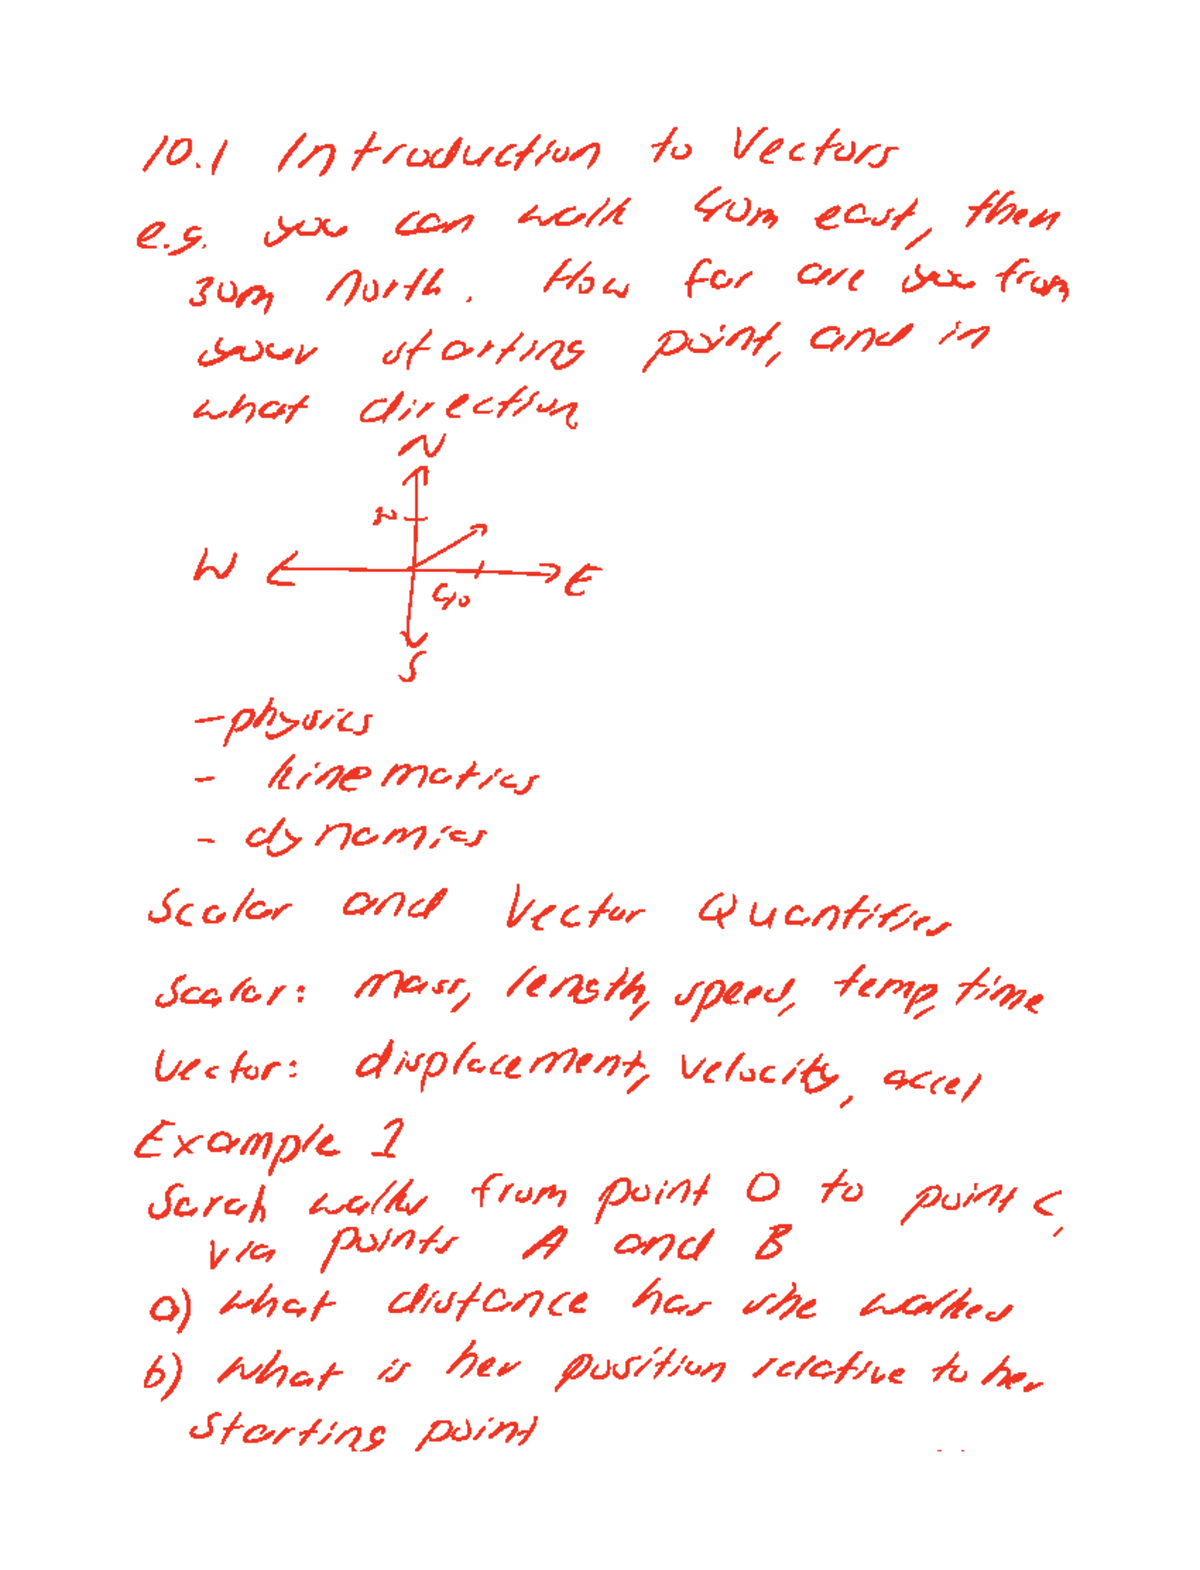 10.1 Introduction to Vectors
e.g. you can walk 40m east, then
30m North. How far are you from
your starting point, and in
what direction
N
W
40
E
S
- physics
- kinematics
- dynamics
Scalar and Vector Quantities
Scalar: mass, length, speed, temp, time
Vector: displacement, velocity, accel
Example 1
Sarah walks from point O to point C,
via points A and B
a) what distance has she walked
b) what is her position relative to her
starting point